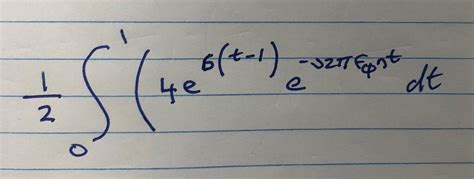 1/2 ∫₀¹ ( 4e^{6(t-1)} e^{-j2πf_φnt} dt